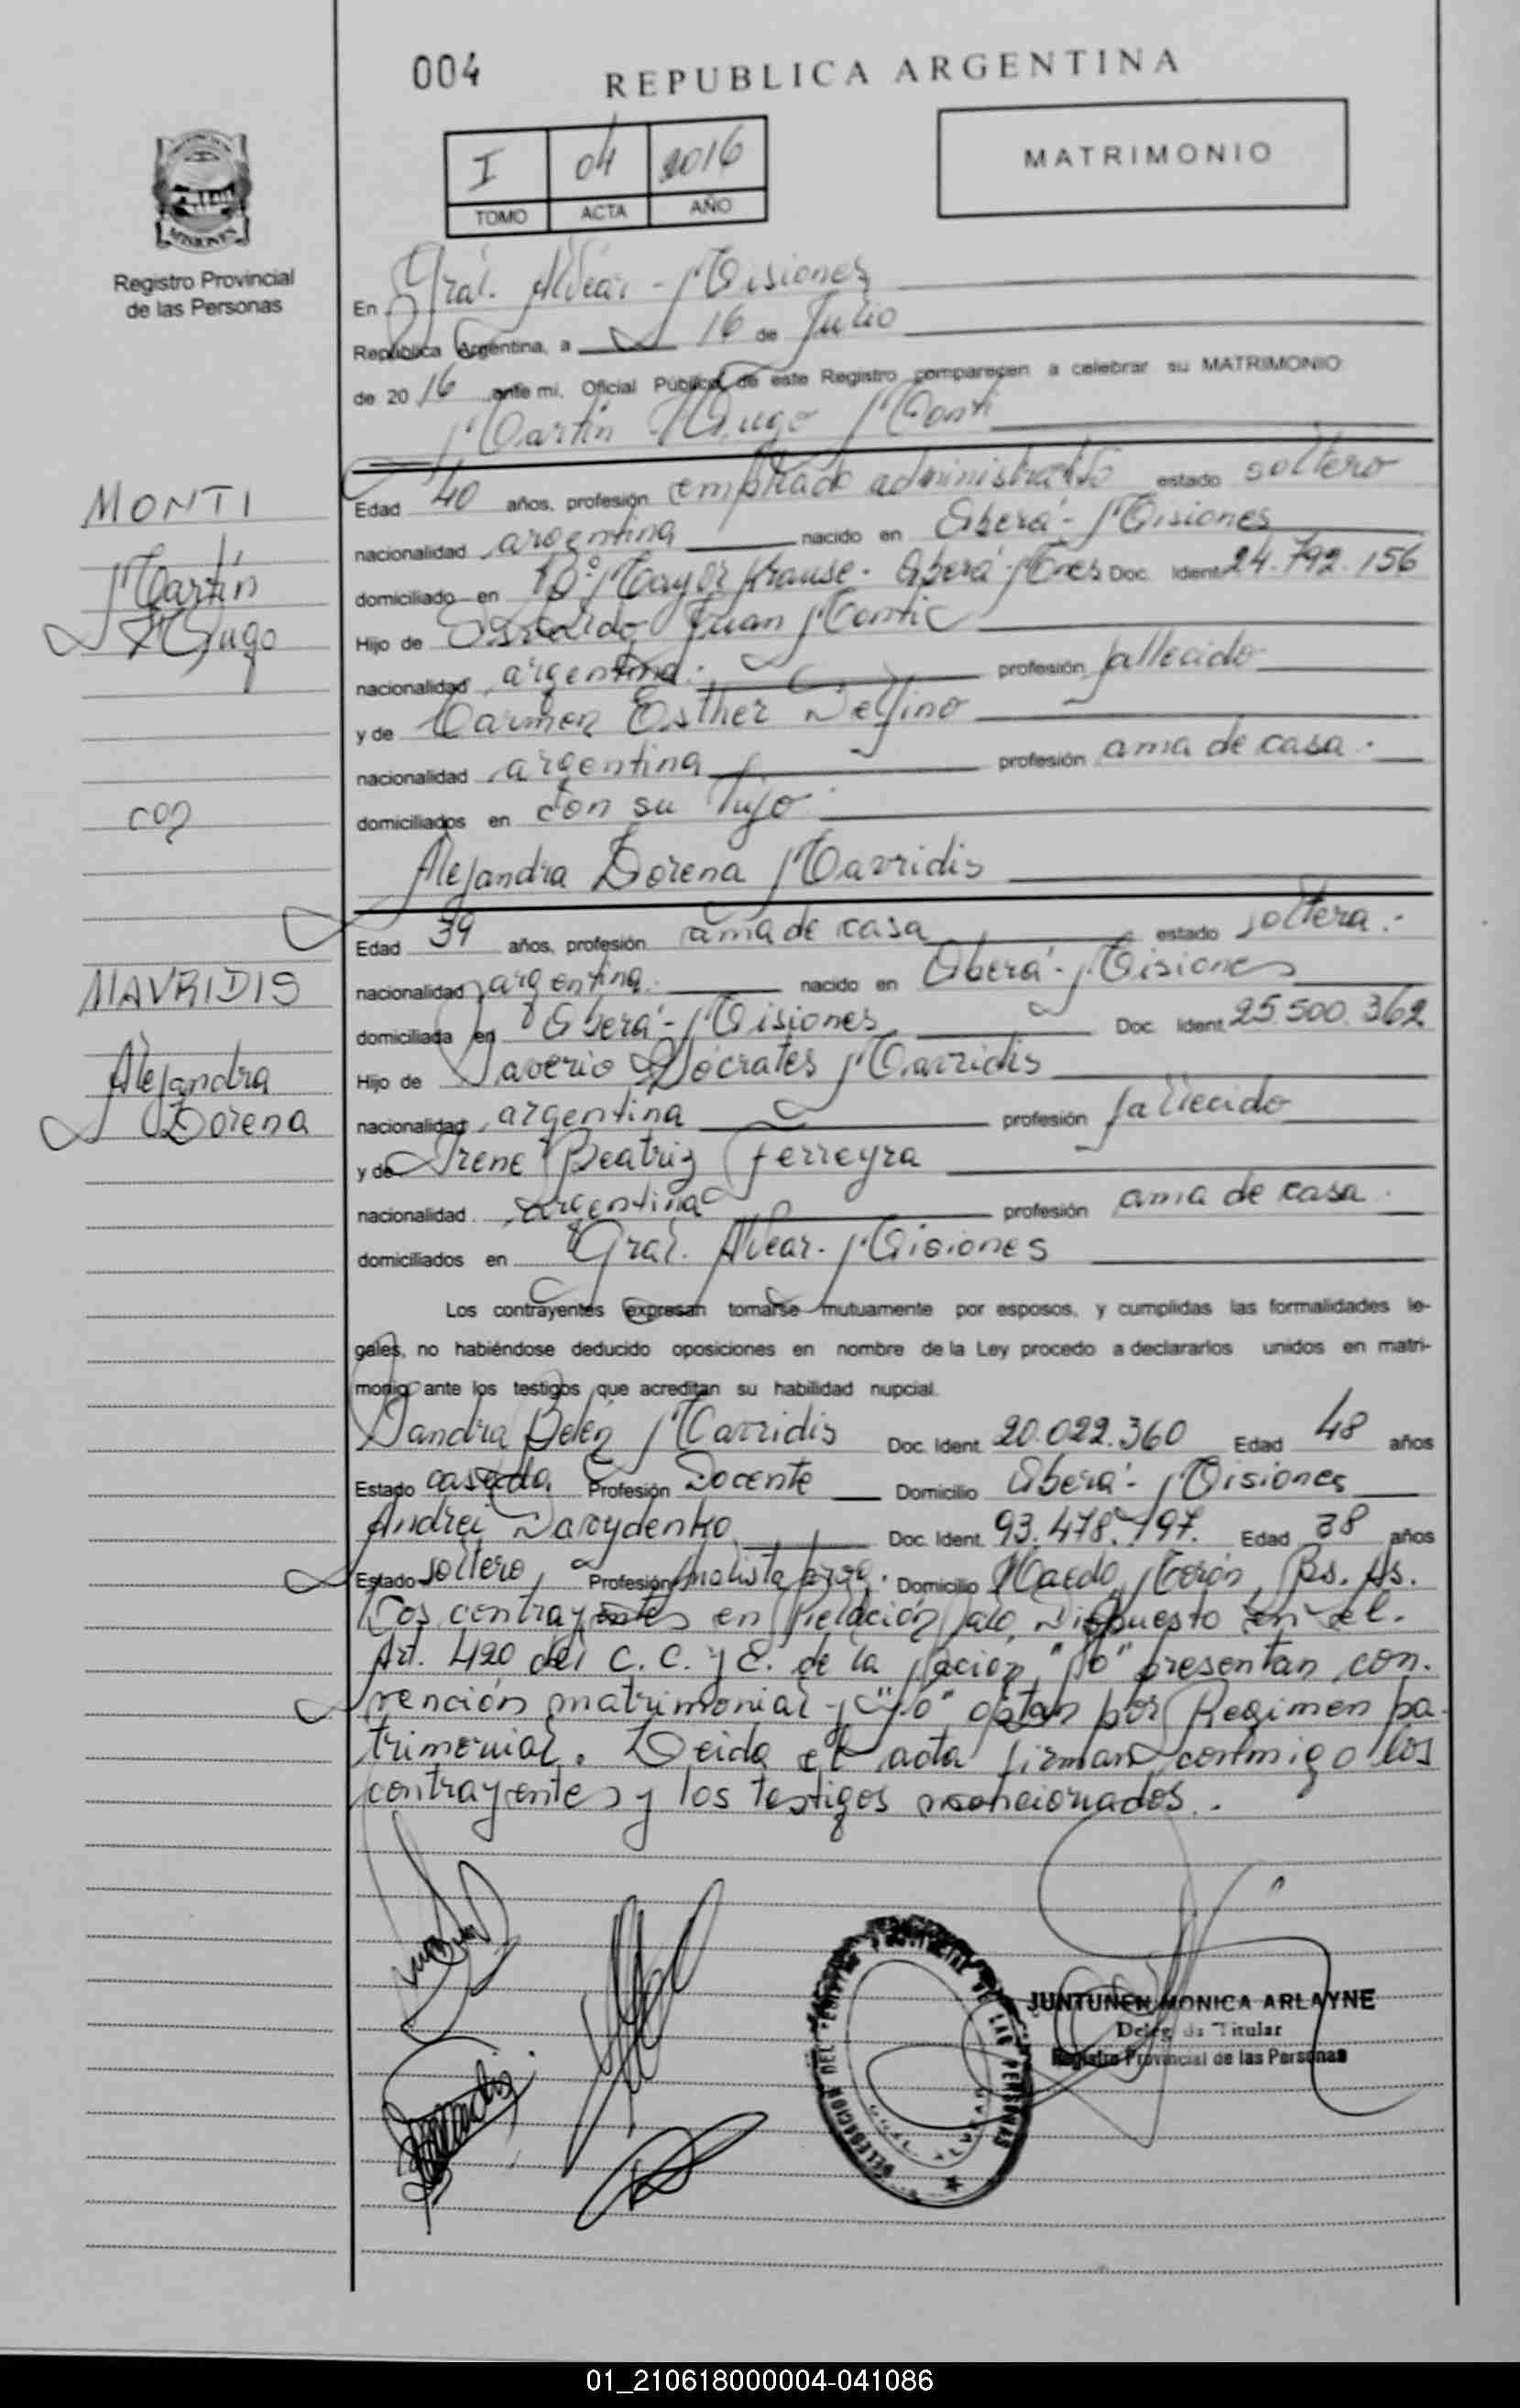 004
REPUBLICA ARGENTINA
I 04 2016
TOMO ACTA AÑO
MATRIMONIO
MISIONES
Registro Provincial
de las Personas
En Gral. Alvear - Misiones
República Argentina, a 16 de Julio
de 2016 ante mi, Oficial Público de este Registro comparecen a celebrar su MATRIMONIO:
Martín Hugo Monti
MONTI
Martín
Hugo
Edad 40 años, profesión empleado administrativo estado soltero
nacionalidad argentina nacido en Oberá - Misiones
domiciliado en Bº Mayor Krause - Oberá - Mnes Doc. Ident. 24.792.156
Hijo de Osvaldo Juan Monti
nacionalidad argentina. profesión fallecido
y de Carmen Esther Delfino
nacionalidad argentina profesión ama de casa.
domiciliados en Con su hijo
con
Alejandra Lorena Mavridis
MAVRIDIS
Alejandra
Lorena
Edad 39 años, profesión ama de casa estado soltera.-
nacionalidad argentina. nacido en Oberá - Misiones
domiciliada en Oberá - Misiones Doc. Ident. 25.500.362
Hijo de Saverio Sócrates Mavridis
nacionalidad argentina profesión fallecido
y de Irene Beatriz Ferreyra
nacionalidad argentina profesión ama de casa.
domiciliados en Gral. Alvear - Misiones
Los contrayentes expresan tomarse mutuamente por esposos, y cumplidas las formalidades le-
gales, no habiéndose deducido oposiciones en nombre de la Ley procedo a declararlos unidos en matri-
monio ante los testigos que acreditan su habilidad nupcial.
Sandra Belén Mavridis Doc. Ident. 20.022.360 Edad 48 años
Estado casada Profesión Docente Domicilio Oberá - Misiones
Andrei Davydenko Doc. Ident. 93.478.797. Edad 38 años
Estado soltero, Profesión Analista prog. Domicilio Haedo, Morón, Bs. As.
Los contrayentes en Relación a lo Dispuesto en el.
Art. 420 del C.C. y C. de la Nación "No" presentan con-
vención matrimonial y "No" optan por Regimen pa-
trimonial. Leida el acta firman conmigo los
contrayentes y los testigos mencionados.-
DELEGACION DEL REGISTRO PROVINCIAL DE LAS PERSONAS
GRAL. ALVEAR
JUNTUNEN MONICA ARLAYNE
Delegada Titular
Registro Provincial de las Personas
01_210618000004-041086